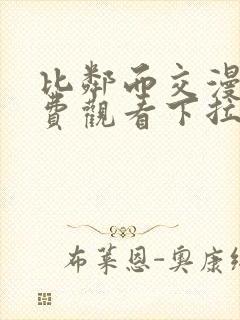 比鄰而交漫
費觀看下拉
布萊恩-奧康